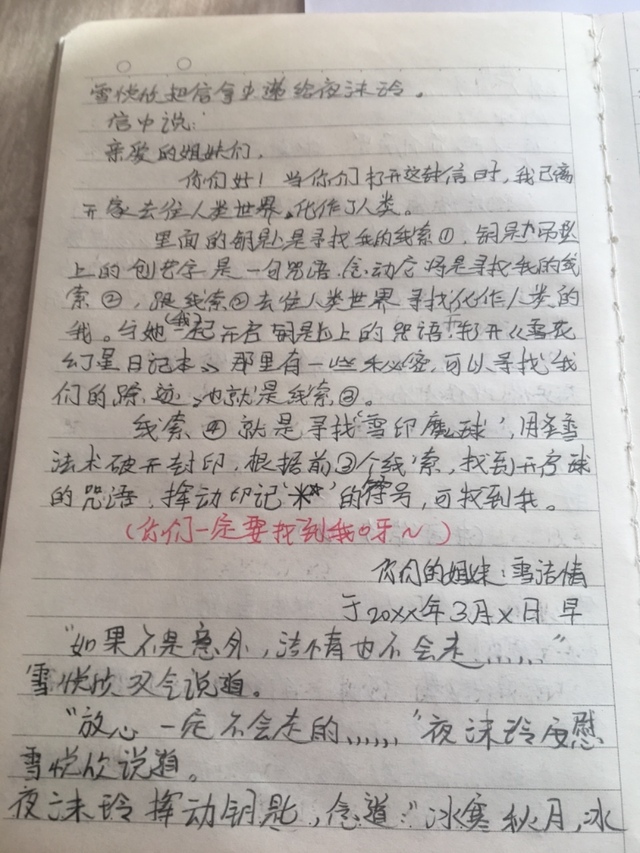 雪悦欣把信拿出递给夜沫玲。
信中说：
亲爱的姐妹们，
你们好！当你们打开这封信时，我已离
开家去往人类世界，化作了人类。
里面的钥匙是寻找我的线索①，钥匙吊坠
上的创艺字是一句咒语，念动它将是寻找我的线
索②，跟线索②去往人类世界寻找化作人类的
我。与她(我)一起开启钥匙上的咒语，打开《雪花
幻星日记本》，那里有一些秘密，可以寻找我
们的踪迹，也就是线索③。
线索④就是寻找“雪印魔球”，用冬雪
法术破开封印，根据前③个线索，找到开启球
的咒语，挥动印记“米**”的符号，可找到我。
(你们一定要找到我呀～)
你们的姐妹：雪洁情
于20XX年3月X日 早
“如果不是意外，洁情也不会走、、、、、、”
雪悦欣叹气说道。
“放心一定不会走的、、、、、、”夜沫玲安慰
雪悦欣说道。
夜沫玲挥动钥匙，念道：“冰寒秋月，冰